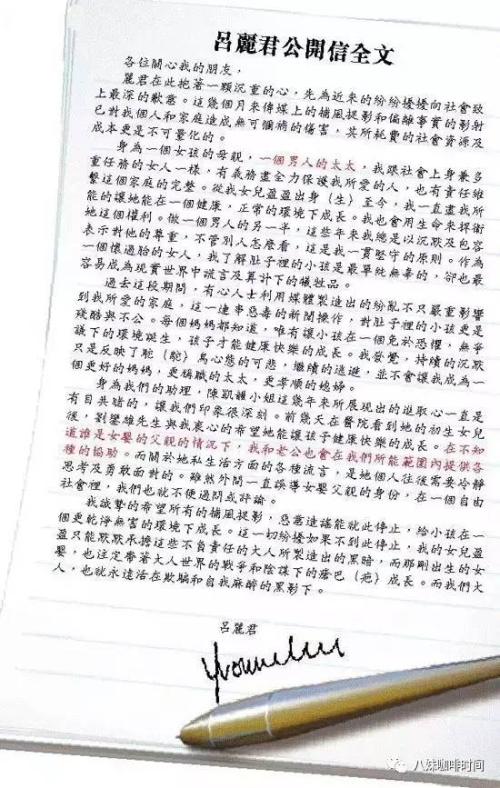 呂麗君公開信全文
各位關心我的朋友,
麗君在此抱著一顆沉重的心,先為近來的紛紛擾擾向社會致
上最深的歉意。這幾個月來傳媒上的捕風捉影和偏離事實的影射
已對我個人和家庭造成無可彌補的傷害,其所耗費的社會資源及
成本更是不可量化的。
身為一個女孩的母親,一個男人的太太,我跟社會上身兼多
重任務的女人一樣,有義務盡全力保護我所愛的人,也有責任維
繫這個家庭的完整。從我女兒盈盈出身(生)至今,我一直盡我所
能的讓她能在一個健康,正常的環境下成長。我也會用生命來捍衛
她這個權利。做一個男人的另一半,這些年來我總是以沉默及包容
表示對他的尊重,不管別人怎麼看,這是我一貫堅守的原則。作為
一個懷過胎的女人,我了解肚子裡的小孩是最單純無辜的,卻也最
容易成為現實世界中謊言及算計下的犧牲品。
過去這段期間,有心人士利用媒體製造出的紛亂不只嚴重影響
到我所愛的家庭,這一連串惡毒的新聞操作,對肚子裡的小孩更是
殘酷與不公。每個媽媽都知道,唯有讓小孩在一個免於恐懼,無爭
議下的環境誕生,孩子才能健康快樂的成長。我發覺,持續的沉默
只是反映了鴕(駝)鳥心態的可悲,繼續的逃避,並不會讓我成為一
個更好的媽媽,更稱職的太太,更孝順的媳婦。
身為我們的助理,陳凱韻小姐這幾年來所展現出的進取心一直是
有目共睹的,讓我們印象很深刻。前幾天在醫院看到她的初生女兒
後,劉鑾雄先生與我衷心的希望她能讓孩子健康快樂的成長。在不知
道誰是女嬰的父親的情況下,我和老公也會在我們所能範圍內提供各
種的協助。而關於她私生活方面的各種流言,是她個人往後需要冷靜
思考及勇敢面對的。雖然外間一直誤導女嬰父親的身份,在一個自由
社會裡,我們也就不便過問或評論。
我誠摯的希望所有的捕風捉影,惡意造謠能就此停止,給小孩在一
個更乾淨無害的環境下成長。這一切紛擾如果不到此停止,我的女兒盈
盈只能默默承擔這些不負責任的大人所製造出的黑暗,而那剛出生的女
嬰,也注定帶著大人世界的戰爭和陰謀下的瘡巴(疤)成長。而我們大
人,也就永遠活在欺騙和自我麻醉的黑影下。
呂麗君
八妹咖啡时间